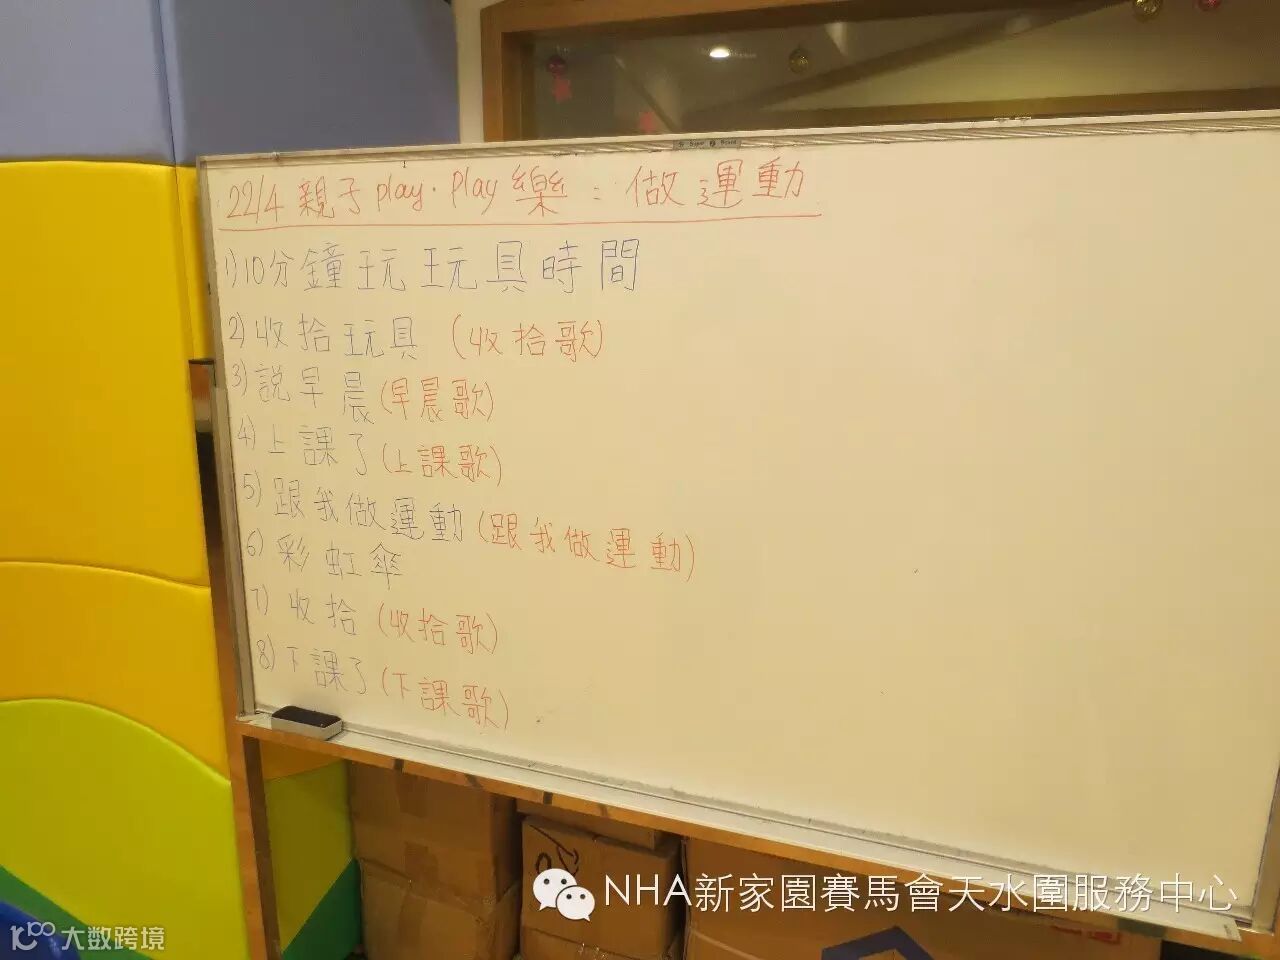 22/4 親子 play．play 樂：做運動
1) 10分鐘玩玩具時間
2) 收拾玩具 (收拾歌)
3) 説早晨 (早晨歌)
4) 上課了 (上課歌)
5) 跟我做運動 (跟我做運動)
6) 彩虹傘
7) 收拾 (收拾歌)
8) 下課了 (下課歌)
NHA新家園賽馬會天水圍服務中心
10100 大数跨境